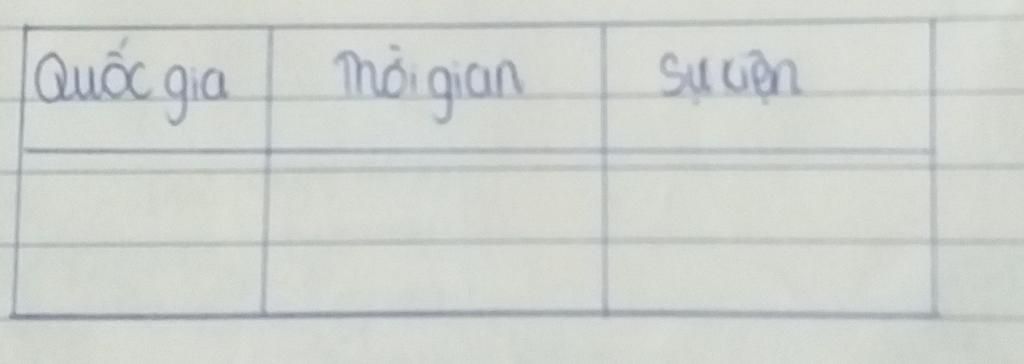 Quốc gia Thời gian Sự kiện